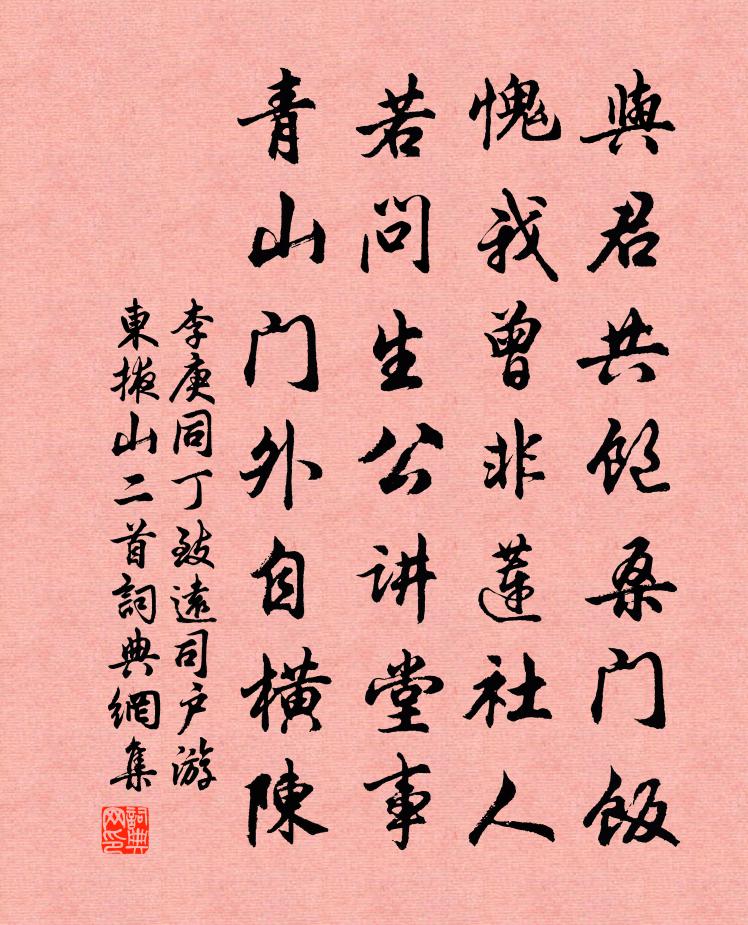 與君共飽桑门飯
愧我曾非蓮社人
若问生公讲堂事
青山门外自横陳
李庚同丁致遠司户游
東掖山二首詞典網集
詞典网印